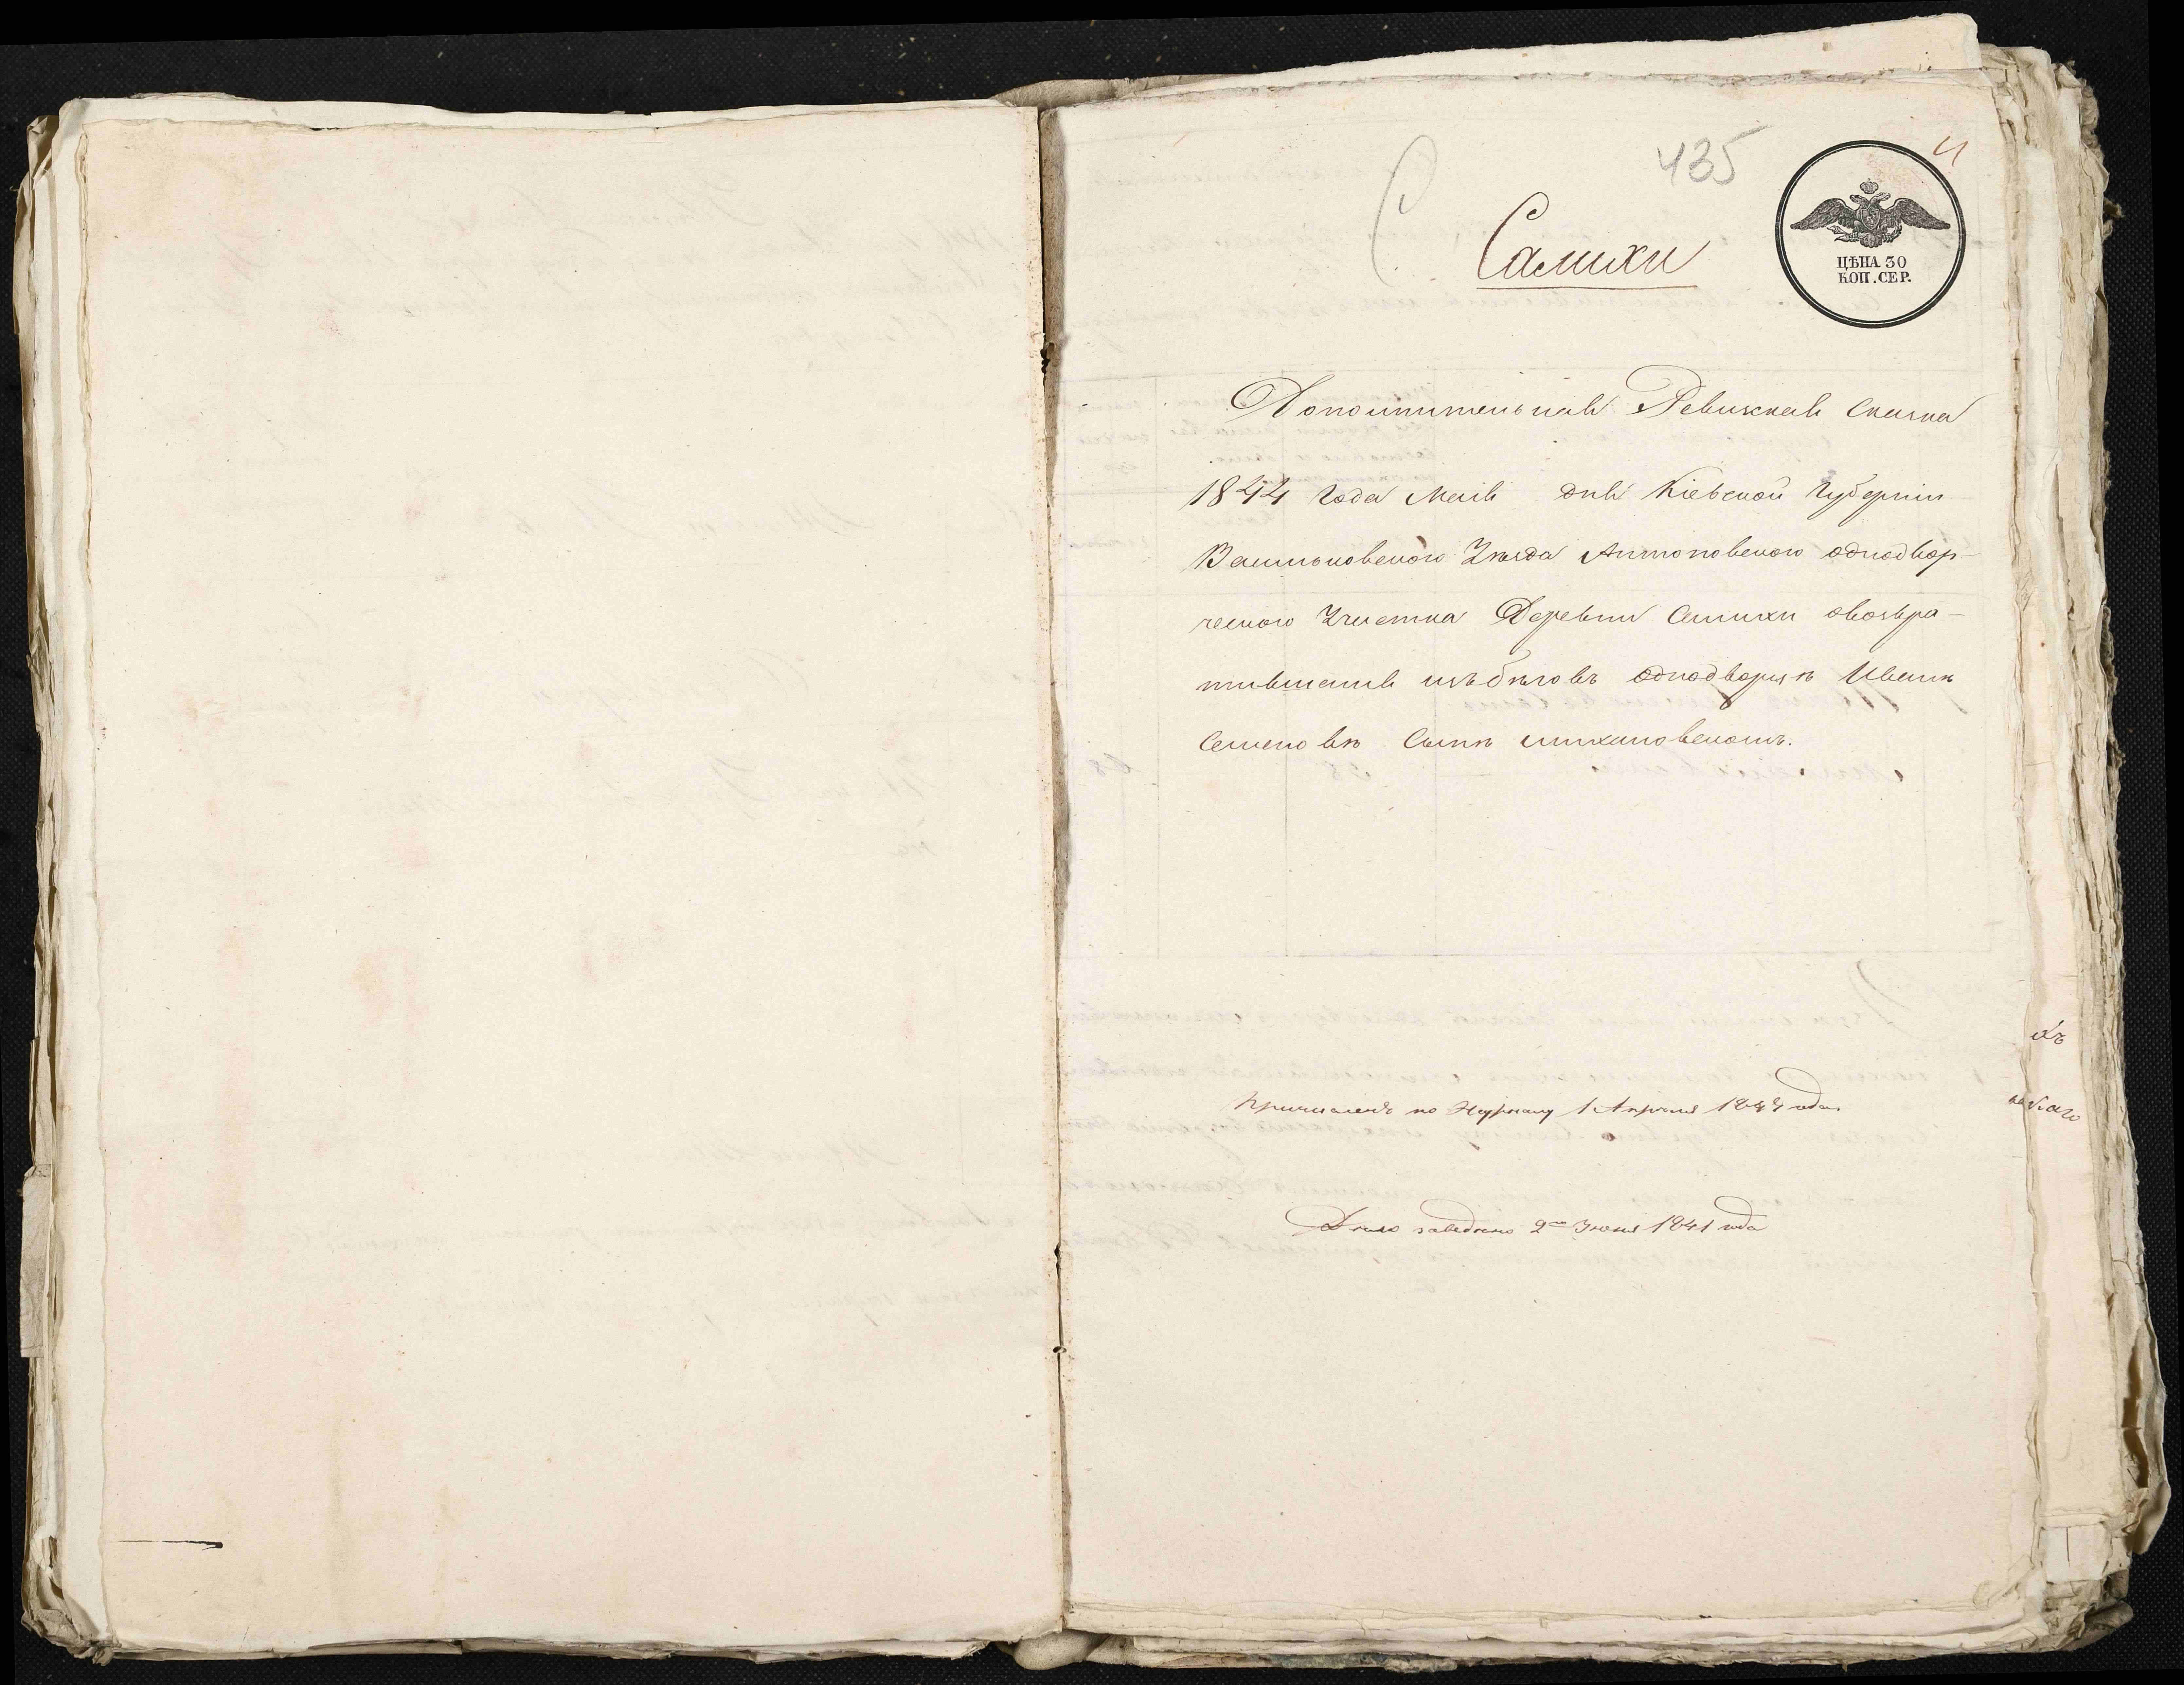 435
Салихи
ЦѢНА 30
КОП. СЕР.
Дополнительная Ревизкая сказка
1844 года Маія дня Кіевской Губерніи
Васильковского Уѣзда Антоновского однодвор-
ческого Участка Деревни Салихи овозвра-
тившемся изъ бѣговъ однодворцѣ Иванѣ
Семеновѣ Сынѣ
причисленъ по Журналу 1 Апрѣля 1844 года.
Дѣло заведено 2го Іюня 1841 года